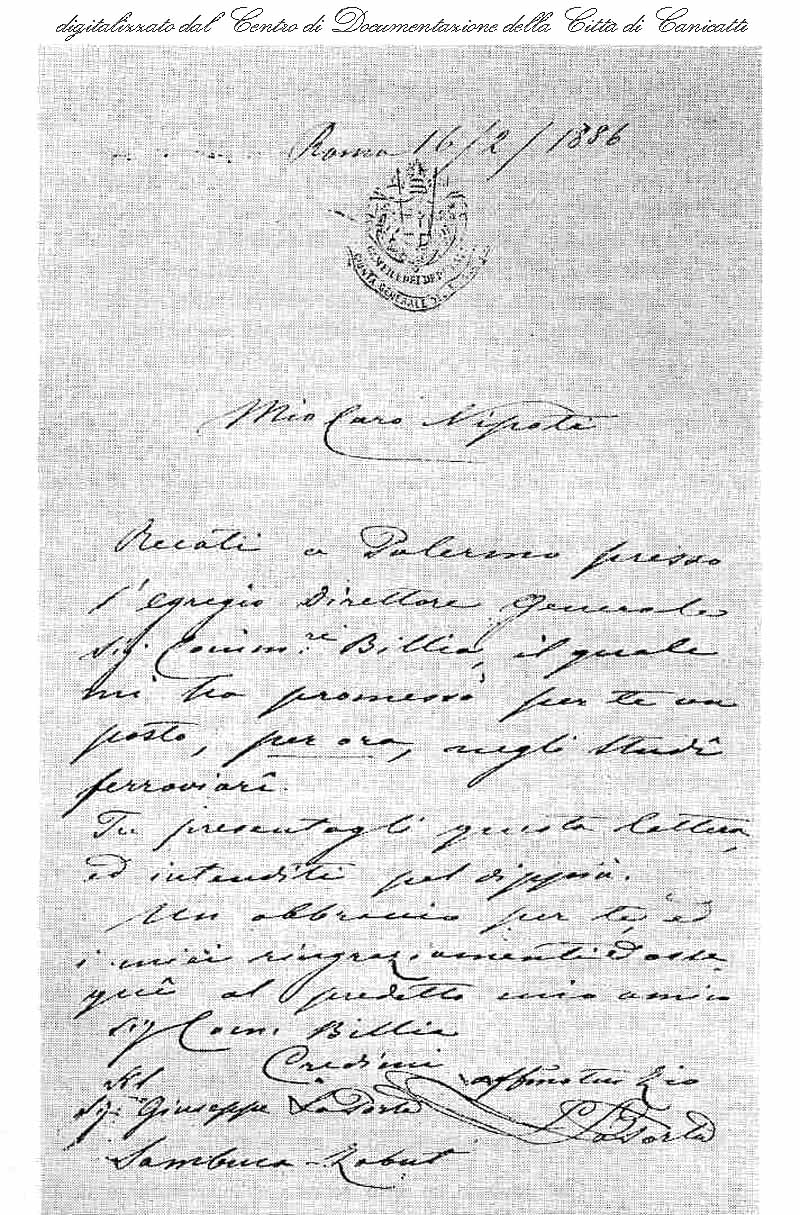 digitalizzato dal Centro di Documentazione della Città di Canicattì
Roma 16/2/1886
CAMERA DEI DEPUTATI
GIUNTA GENERALE DEL BILANCIO
Mio Caro Nipote
Recati a Palermo presso
l'egregio Direttore Generale
Sig. Comm.re Billia, il quale
mi ha promesso per te un
posto, per ora, negli studî
ferroviarî.
Tu presentagli questa lettera,
ed intenditi pel dippiù.
Un abbraccio per te, ed
i miei ringraziamenti ed osse
quî al predetto mio amico
Sig Com. Billia
Credimi
affmo tuo Zio
Al
Sig. Giuseppe LaPorta
LaPorta
Sambuca-Zabut